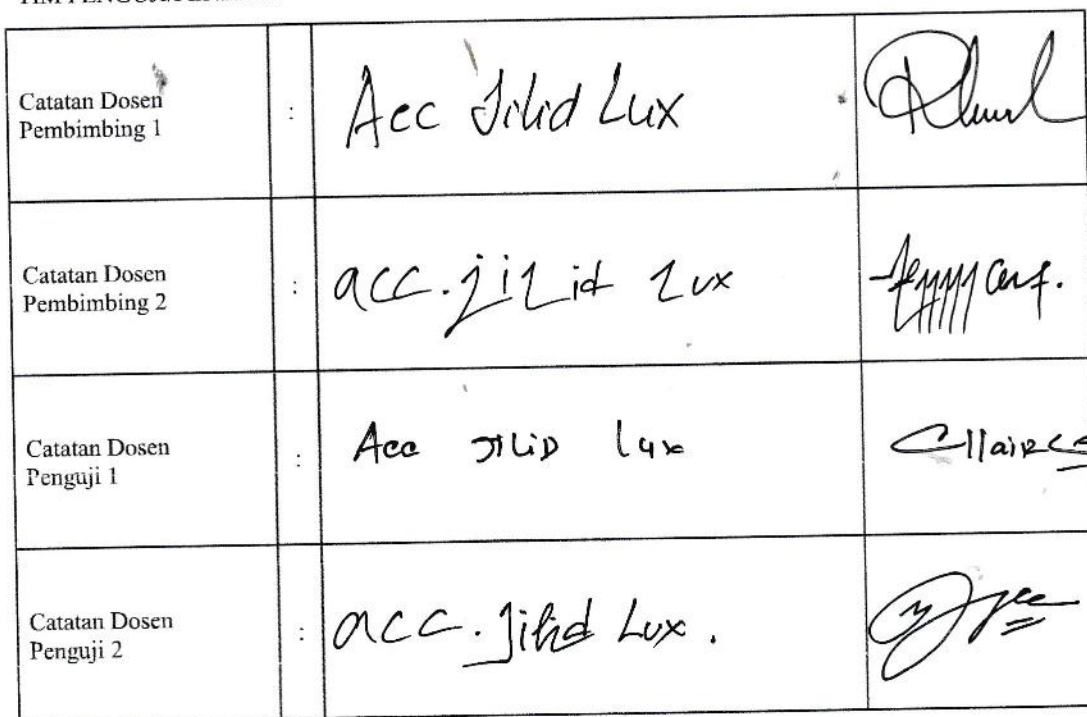 Catatan Dosen
Pembimbing 1
:
Acc Jilid Lux
Catatan Dosen
Pembimbing 2
:
acc. jilid lux
Catatan Dosen
Penguji 1
:
Acc JiLiD lux
Catatan Dosen
Penguji 2
:
acc. Jilid Lux.